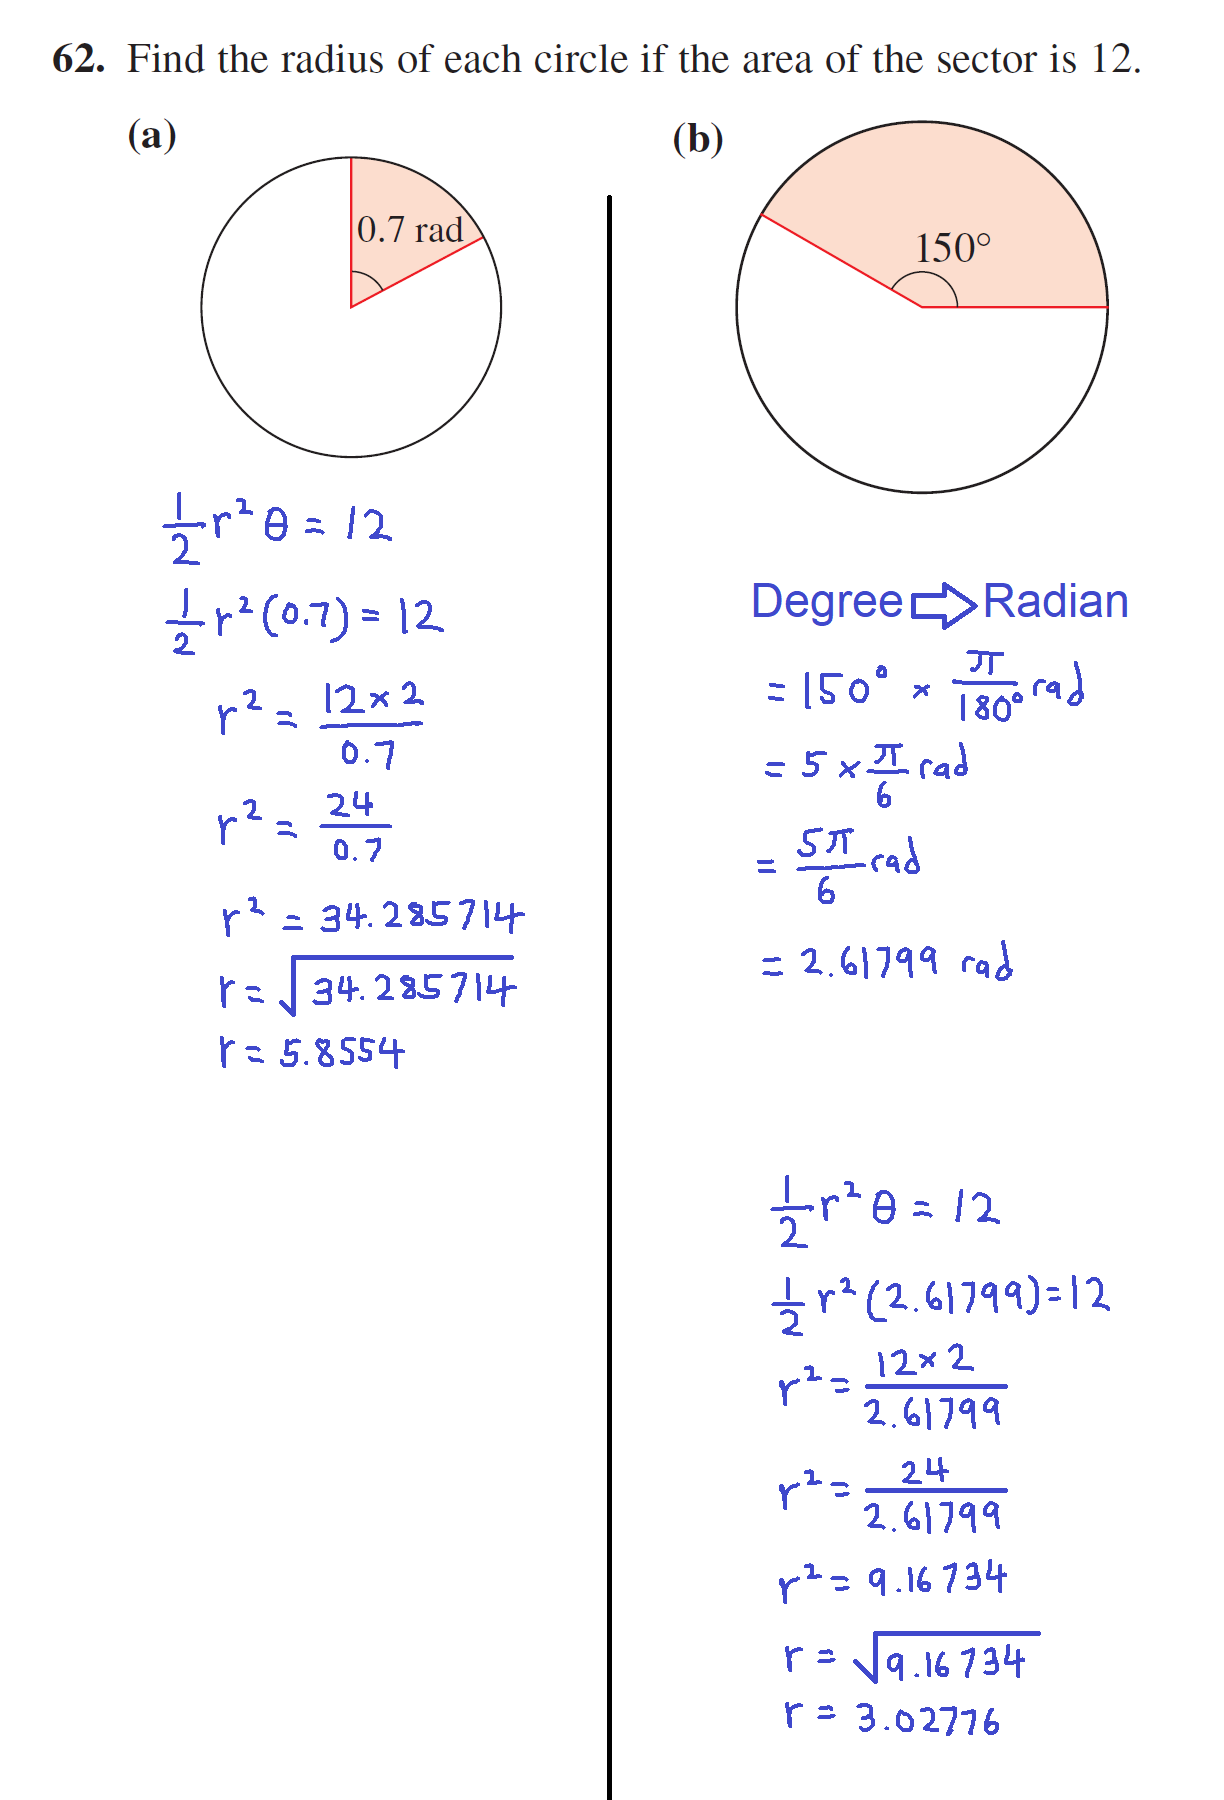 62. Find the radius of each circle if the area of the sector is 12.
(a)
0.7 rad
1/2 r² θ = 12
1/2 r² (0.7) = 12
r² = 12 × 2 / 0.7
r² = 24 / 0.7
r² = 34.285714
r = √34.285714
r = 5.8554
(b)
150°
Degree ⇨ Radian
= 150° × π/180° rad
= 5 × π/6 rad
= 5π/6 rad
= 2.61799 rad
1/2 r² θ = 12
1/2 r² (2.61799) = 12
r² = 12 × 2 / 2.61799
r² = 24 / 2.61799
r² = 9.16734
r = √9.16734
r = 3.02776